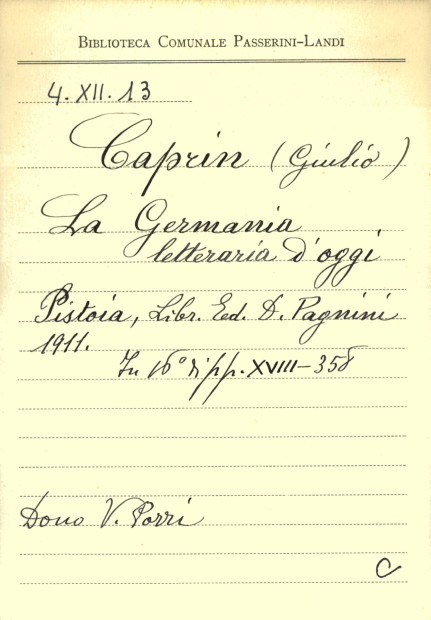 BIBLIOTECA COMUNALE PASSERINI-LANDI
4. XII. 13
Caprin (Giulio)
La Germania
letteraria d'oggi
Pistoia, Libr. Ed. D. Pagnini
1911.
In 16° di pp. XVIII-358
Dono V. Porri
C